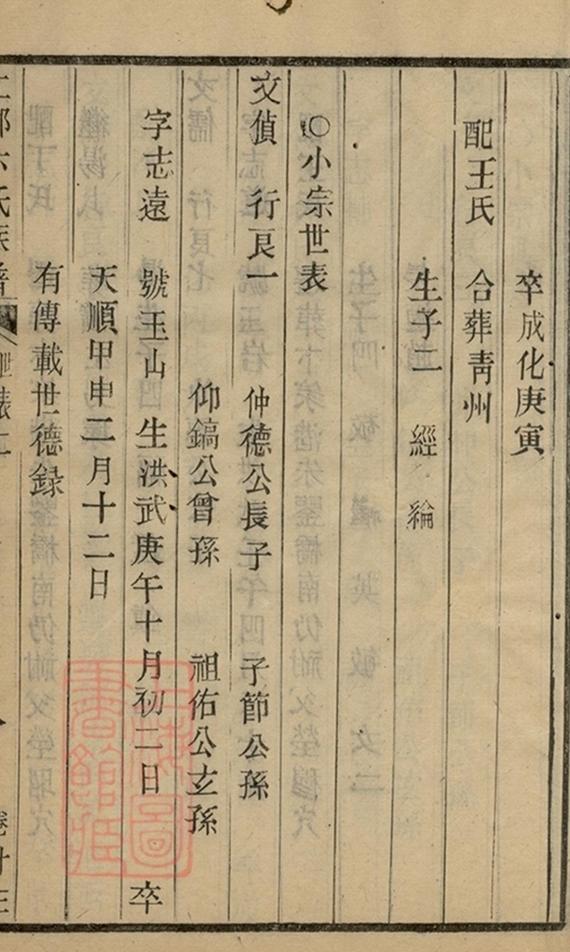 卒成化庚寅
配王氏 合葬青州
生子二 經 綸
○小宗世表
文偵 行良一 仲德公長子 子節公孫
仰鎬公曾孫 祖佑公玄孫
字志遠 號玉山 生洪武庚午十月初二日 卒
天順甲申三月十二日
有傳載世德録